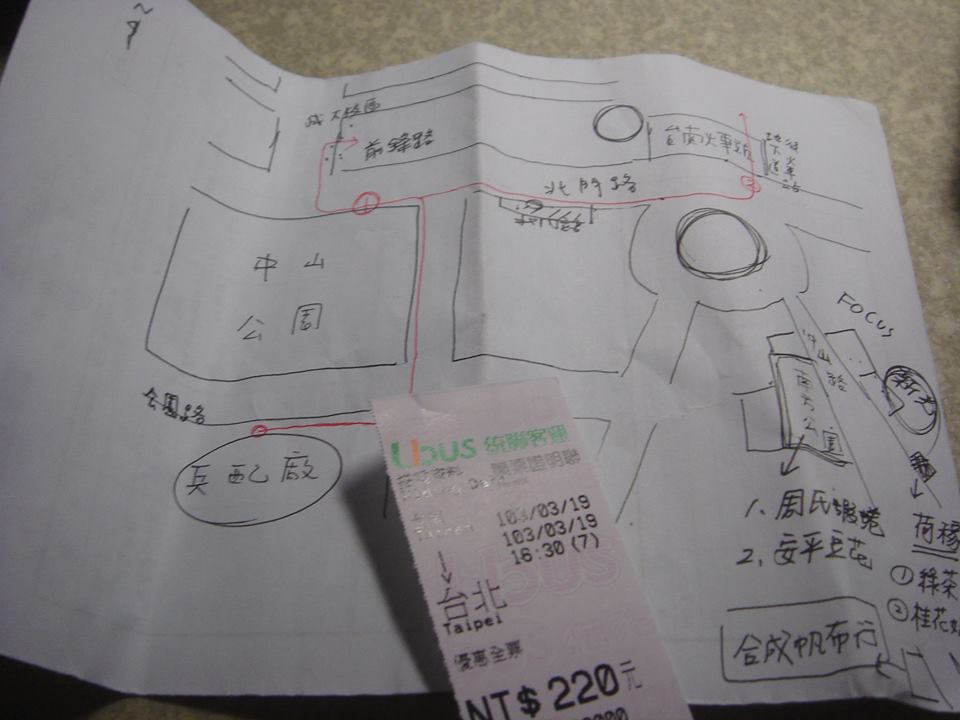 成大校區
前鋒路
台南火車站
北門路
①
②
中山
公園
公園路
兵配廠
FOCUS
中山路
新光
1、周氏蝦捲
2、安平豆花
荷
①綠茶
②桂花
合成帆布行
Ubus 統聯客運
購票證明聯
103/03/19
103/03/19
16:30(7)
↓
台北
Taipei
優惠全票
NT$220元